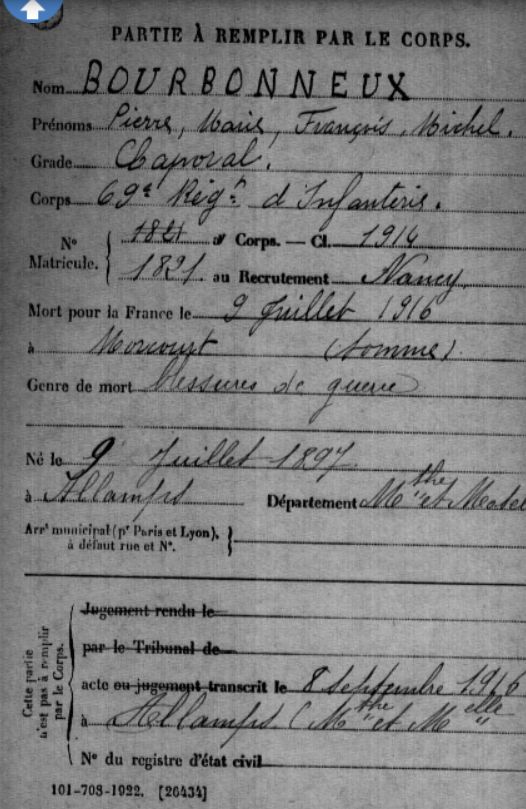 PARTIE À REMPLIR PAR LE CORPS.
Nom BOURBONNEUX
Prénoms Pierre, Marie, François, Michel.
Grade Caporal.
Corps 69e Régt d'Infanterie.
N° Matricule. { 1821 au Corps. — Cl. 1914
1821. au Recrutement Nancy
Mort pour la France le 9 Juillet 1916
à Morcourt (Somme)
Genre de mort blessures de guerre
Né le 9 Juillet 1897
à Allamps Département Mthe et Mosel
Arrt municipal (pr Paris et Lyon),
à défaut rue et N°.
Cette partie n'est pas à remplir par le Corps.
Jugement rendu le
par le Tribunal de
acte ou jugement transcrit le 8 septembre 1916
à Allamps (Mthe et Melle
N° du registre d'état civil
101-708-1922. [26434]